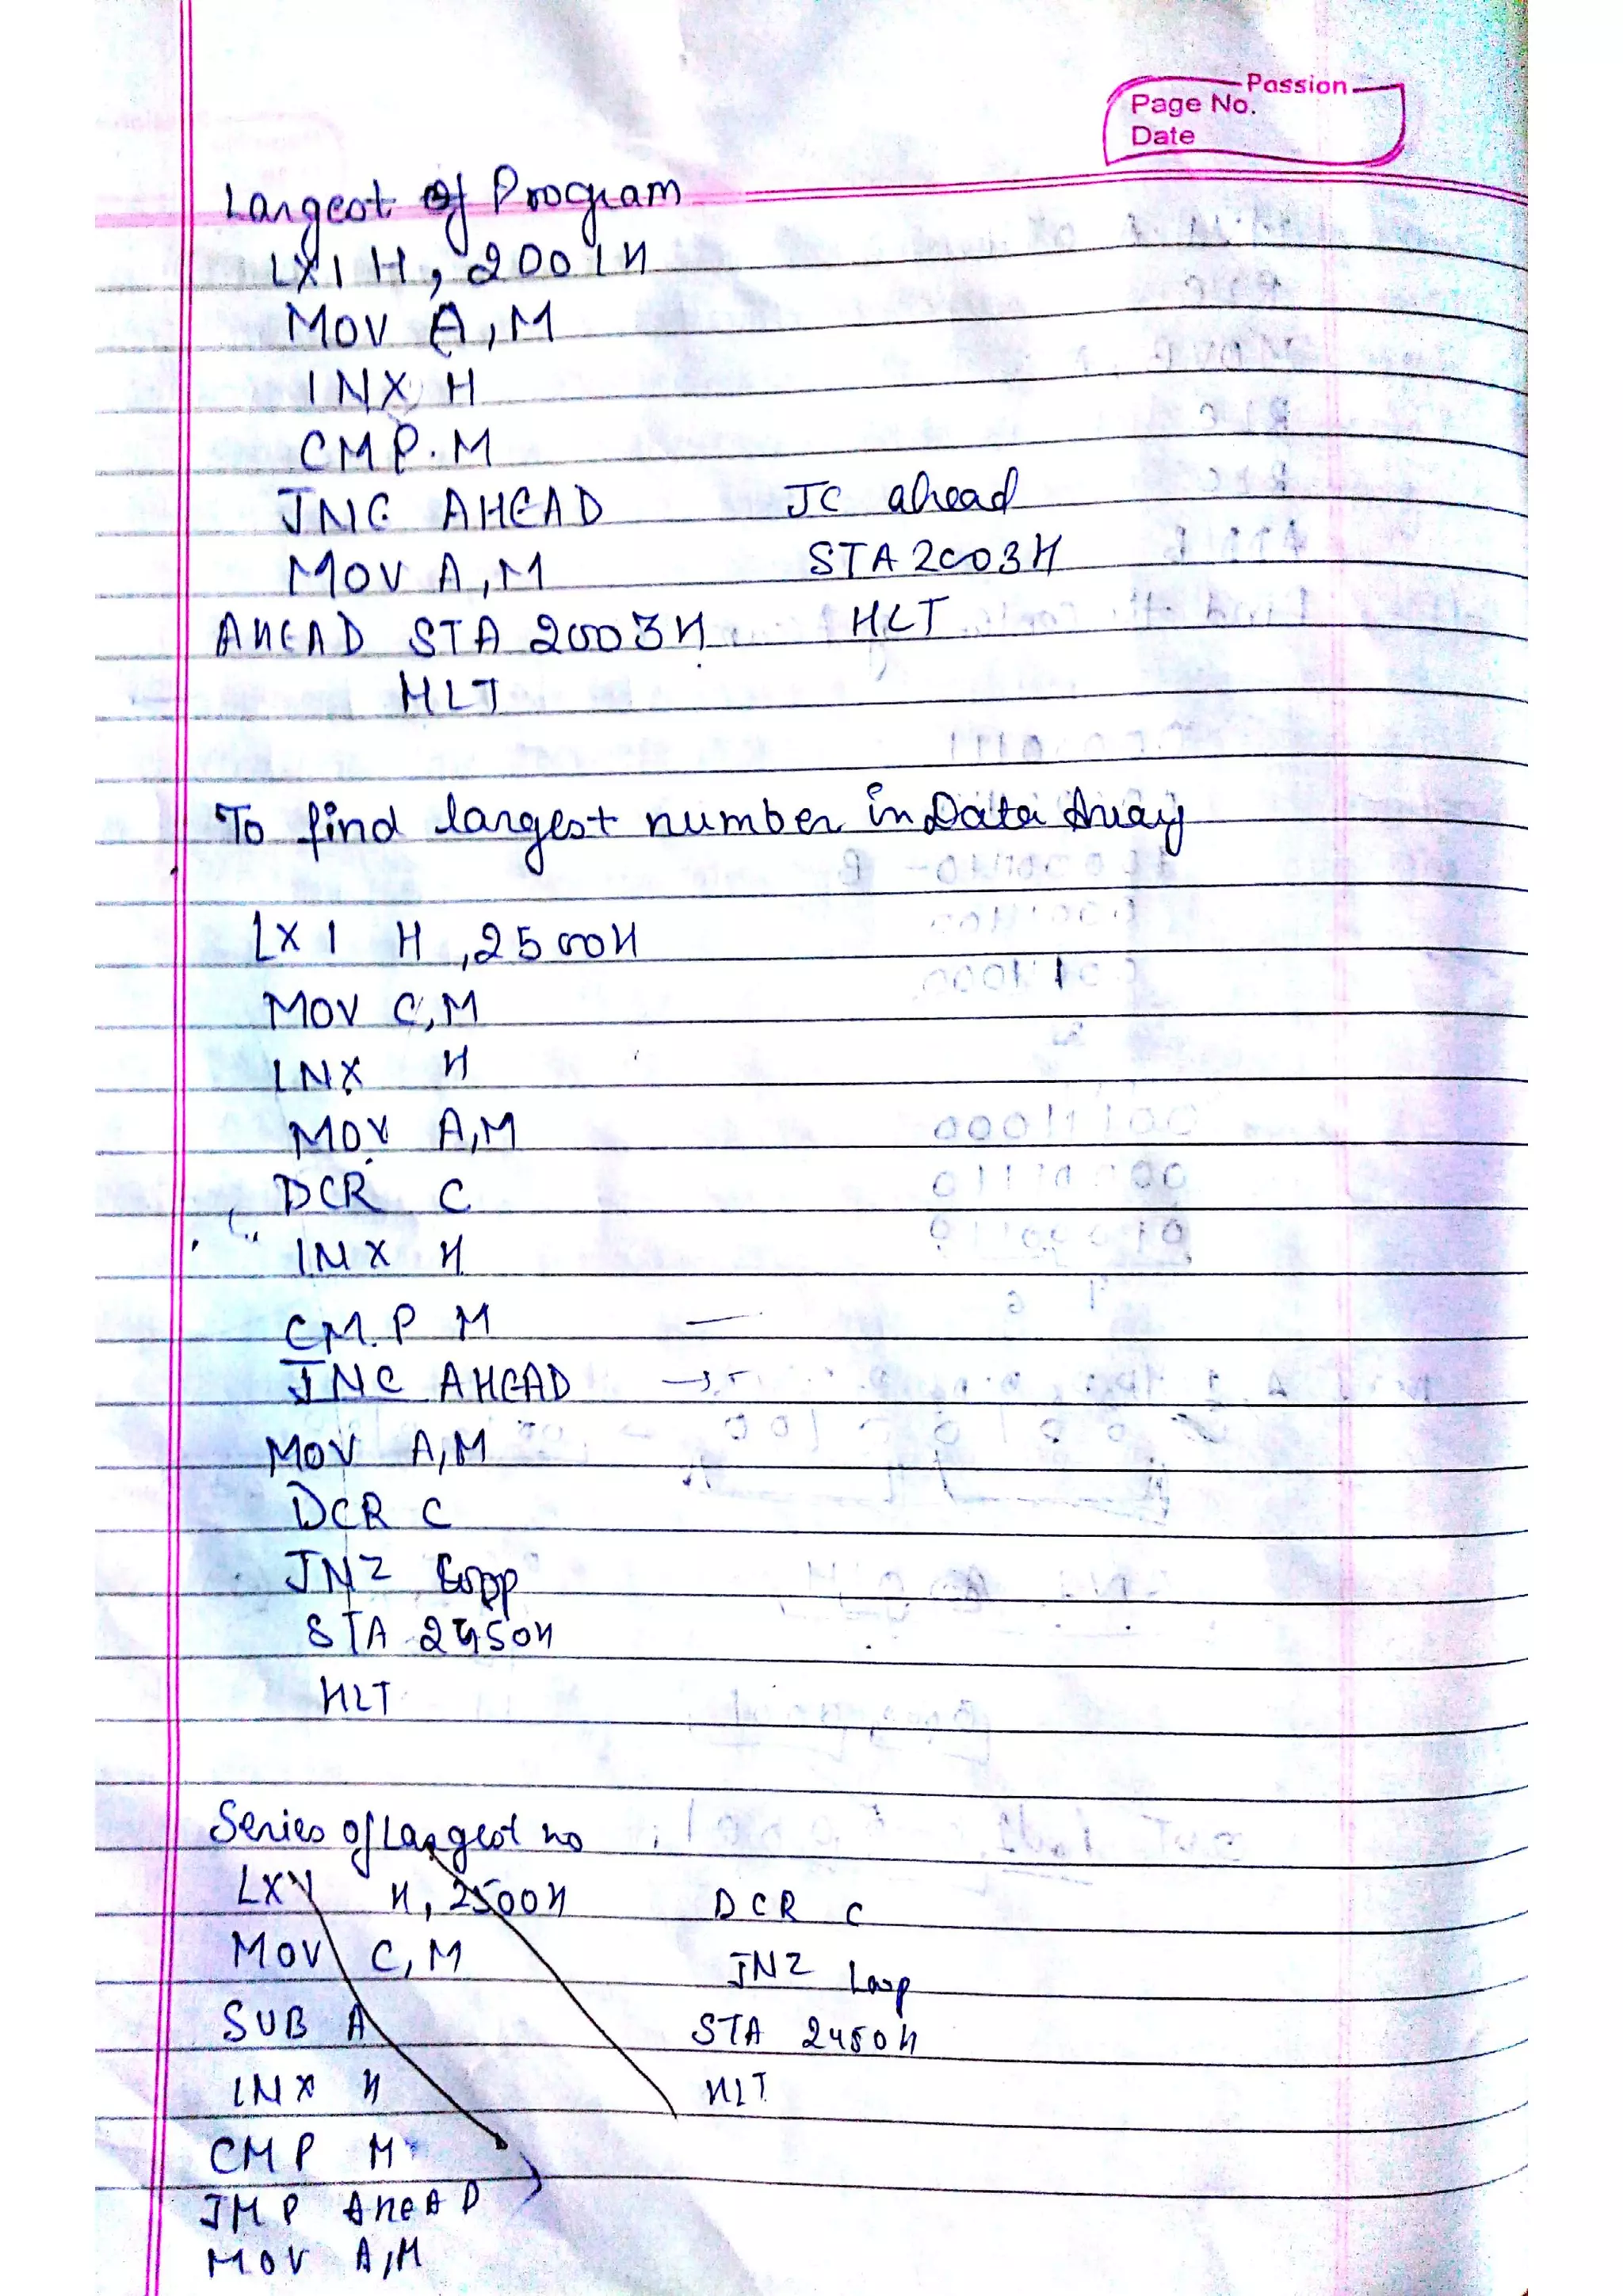 Passion
Page No.
Date
Largest Of Program
LXI H, 2001H
MOV A, M
INX H
CMP. M
JNC AHEAD JC ahead
MOV A, M STA 2003H
AHEAD STA 2003H HLT
HLT
To find largest number in Data Array
LXI H, 2500H
MOV C, M
INX H
MOV A, M
DCR C
INX H
CM.P M —
JNC AHEAD →
MOV A, M
DCR C
JNZ Loop
STA 2450H
HLT
Series of Largest no
LXI H, 2500H DCR C
MOV C, M JNZ Loop
SUB A STA 2450H
INX H HLT
CMP M
JMP AheAD
MOV A, M